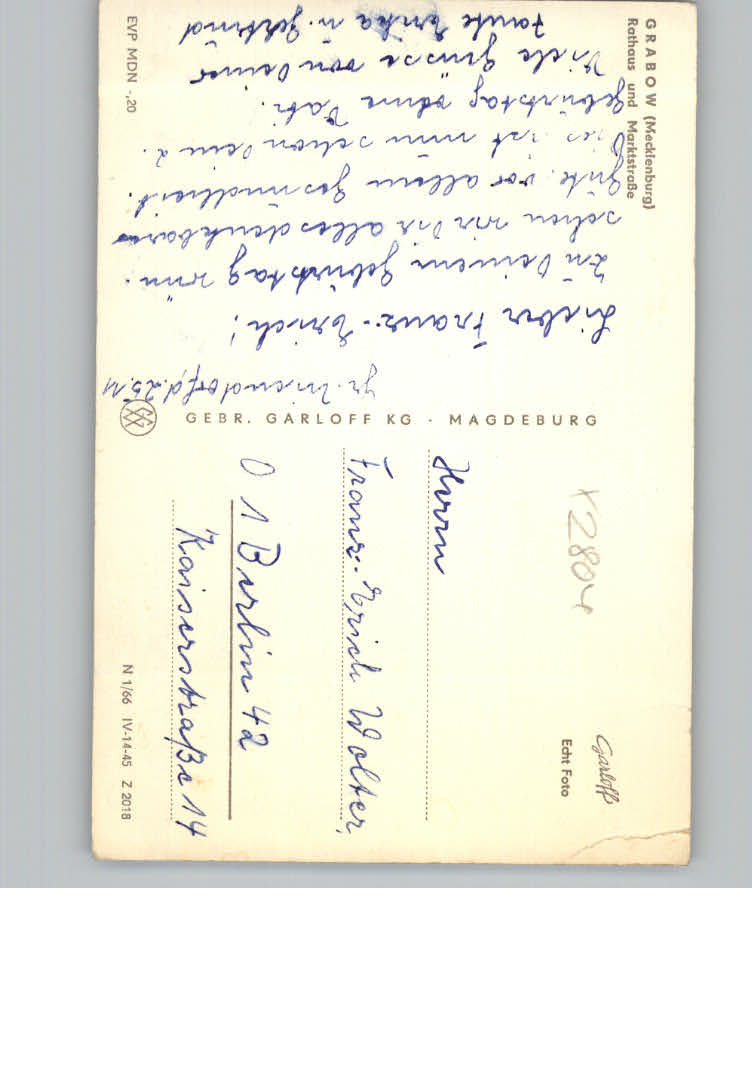 GRABOW (Mecklenburg)
Rathaus und Marktstraße
gr. d. 25.11
Lieber Franz-Erich!
Zu Deinem Geburtstag wün-
schen wir Dir alles denkbar
Gute, vor allem Gesundheit.
Dies ist nun schon Dein 2.
Geburtstag ohne Vati.
Viele Grüsse von Deiner
Tante Erika u. Gertrud
EVP MDN -,20
GEBR. GARLOFF KG · MAGDEBURG
X2804
Garloff
Echt Foto
Herrn
Franz-Erich Wolter
1 Berlin 42
Kaiserstraße 14
N 1/66 IV-14-45 Z 2018